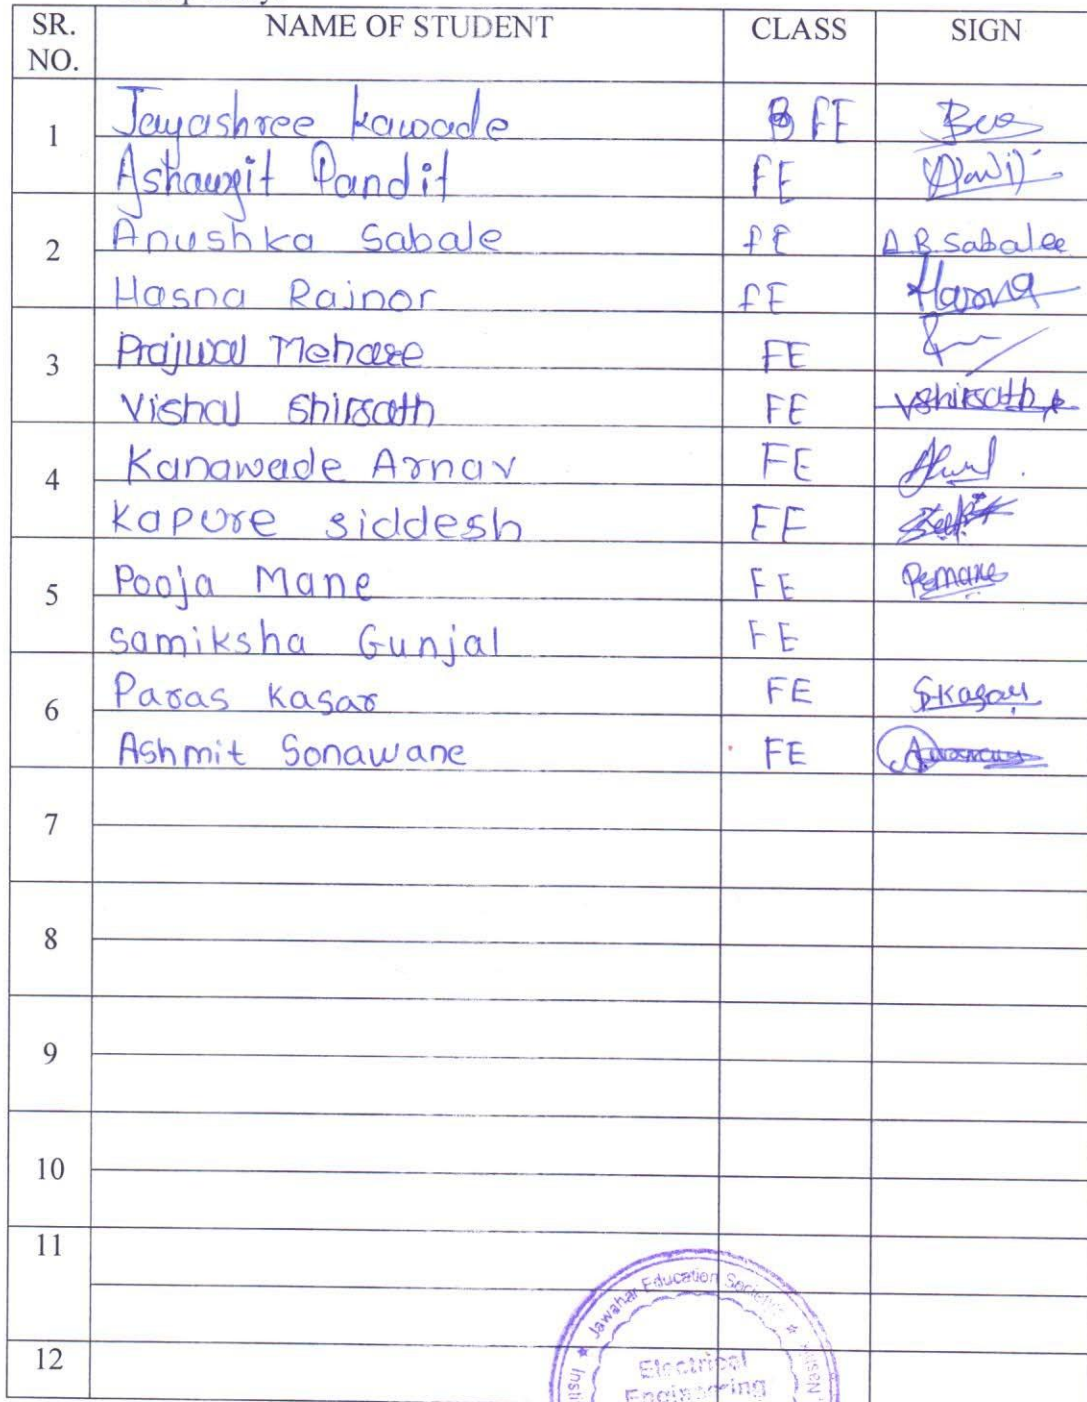 SR. NO. NAME OF STUDENT CLASS SIGN
1 Jayashree Kawade FE
Pandit FE
2 Anushka Sabale FE A.B.Sabalee
Hasna Rajnor FE Hasna
3 Prajwal Mehare FE
Vishal Shirsath FE VShirsath
4 Kanawade Arnav FE
Kapure siddesh FE
5 Pooja Mane FE Pemane
Samiksha Gunjal FE
6 Paras Kasar FE
Ashmit Sonawane FE
7
8
9
10
11
12
Jawahar Education Society's
Electrical
Engineering